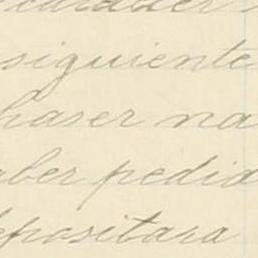 siguiente
haser na
aber pedia
depositara